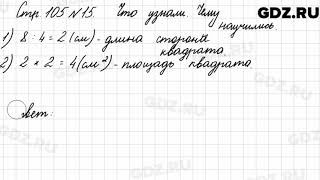 GDZ.RU
Стр. 105 №15. Что узнали. Чему
научились.
1) 8 : 4 = 2 (см) - длина стороны
квадрата.
2) 2 × 2 = 4 (см²) - площадь квадрата
Ответ:
GDZ.RU